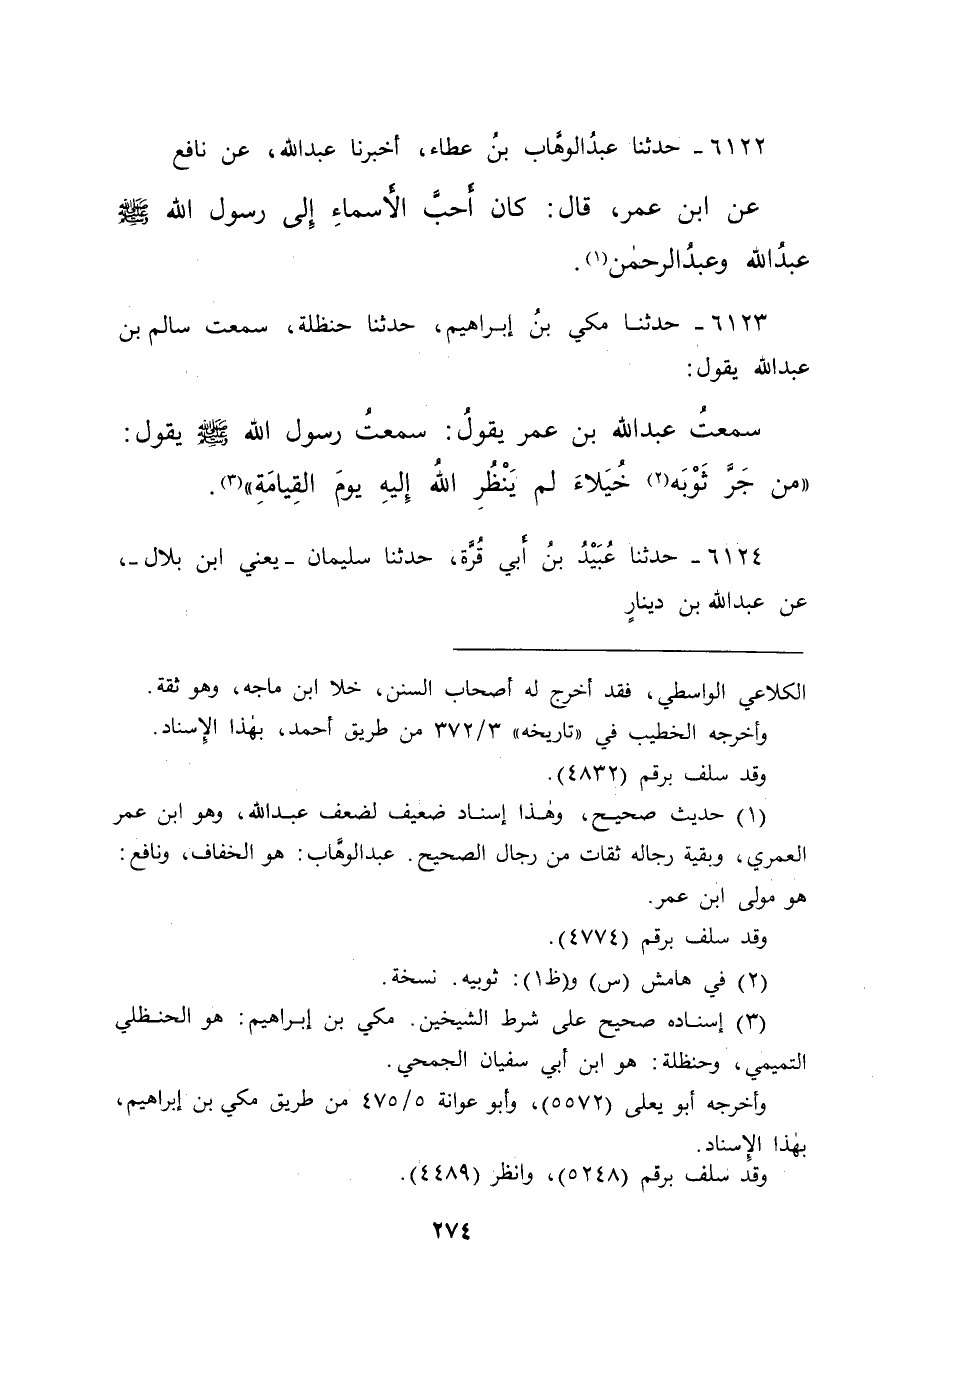 ٦١٢٢ - حدثنا عبدُالوهَّاب بنُ عطاء، أخبرنا عبدالله، عن نافع
عن ابن عمر، قال: كان أَحبَّ الأَسماءِ إِلى رسول الله ﷺ
عبدُالله وعبدُالرحمٰن(١).
٦١٢٣ - حدثنا مكي بنُ إبراهيم، حدثنا حنظلة، سمعت سالم بن
عبدالله يقول:
سمعتُ عبدالله بن عمر يقولُ: سمعتُ رسول الله ﷺ يقول:
«من جَرَّ ثَوْبَه(٢) خُيَلاءَ لم يَنْظُرِ اللهُ إِليهِ يومَ القِيامَةِ»(٣).
٦١٢٤ - حدثنا عُبَيْدُ بنُ أَبي قُرَّة، حدثنا سليمان - يعني ابن بلال -،
عن عبدالله بن دينارٍ
الكلاعي الواسطي، فقد أخرج له أصحاب السنن، خلا ابن ماجه، وهو ثقة.
وأخرجه الخطيب في «تاريخه» ٣٧٢/٣ من طريق أحمد، بهٰذا الإسناد.
وقد سلف برقم (٤٨٣٢).
(١) حديث صحيح، وهٰذا إسناد ضعيف لضعف عبدالله، وهو ابن عمر
العمري، وبقية رجاله ثقات من رجال الصحيح. عبدالوهَّاب: هو الخفاف، ونافع:
هو مولى ابن عمر.
وقد سلف برقم (٤٧٧٤).
(٢) في هامش (س) و(ظ١): ثوبيه. نسخة.
(٣) إسناده صحيح على شرط الشيخين. مكي بن إبراهيم: هو الحنظلي
التميمي، وحنظلة: هو ابن أبي سفيان الجمحي.
وأخرجه أبو يعلى (٥٥٧٢)، وأبو عوانة ٤٧٥/٥ من طريق مكي بن إبراهيم،
بهٰذا الإسناد.
وقد سلف برقم (٥٢٤٨)، وانظر (٤٤٨٩).
٢٧٤